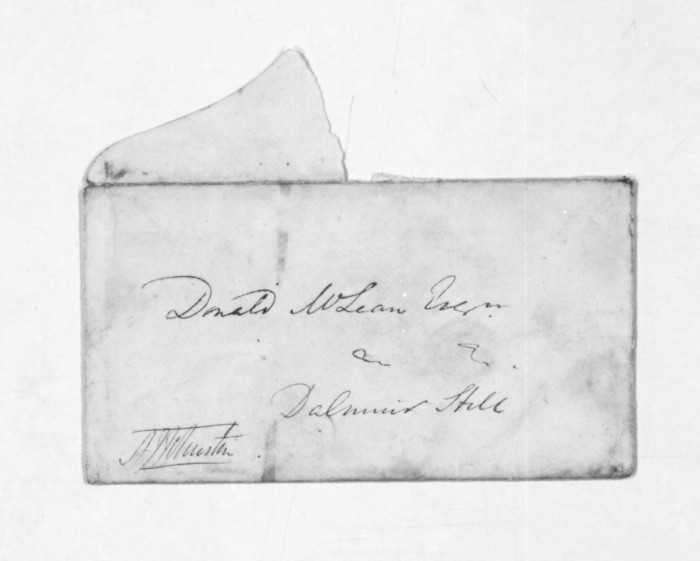 Donald McLean Esqr.
&c &c.
Dalmuir Hill